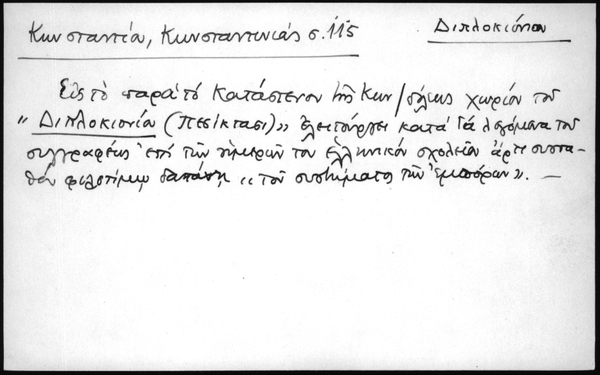 Κωνσταντίου, Κωνσταντινιάς σ. 115
Διπλοκιόνιον
Εἰς τὸ παρὰ τὸ Κατάστενον τῆς Κων/πόλεως χωρίον τοῦ
"Διπλοκιονίου (Πεσίκτασι)" ἐλειτούργει κατὰ τὰ λεγόμενα τοῦ
συγγραφέως ἐπὶ τῶν ἡμερῶν του ἑλληνικὸν σχολεῖον ἄρτι συστα-
θὲν φιλοτίμῳ δαπάνῃ "τοῦ συστήματος τῶν ἐμπόρων". —